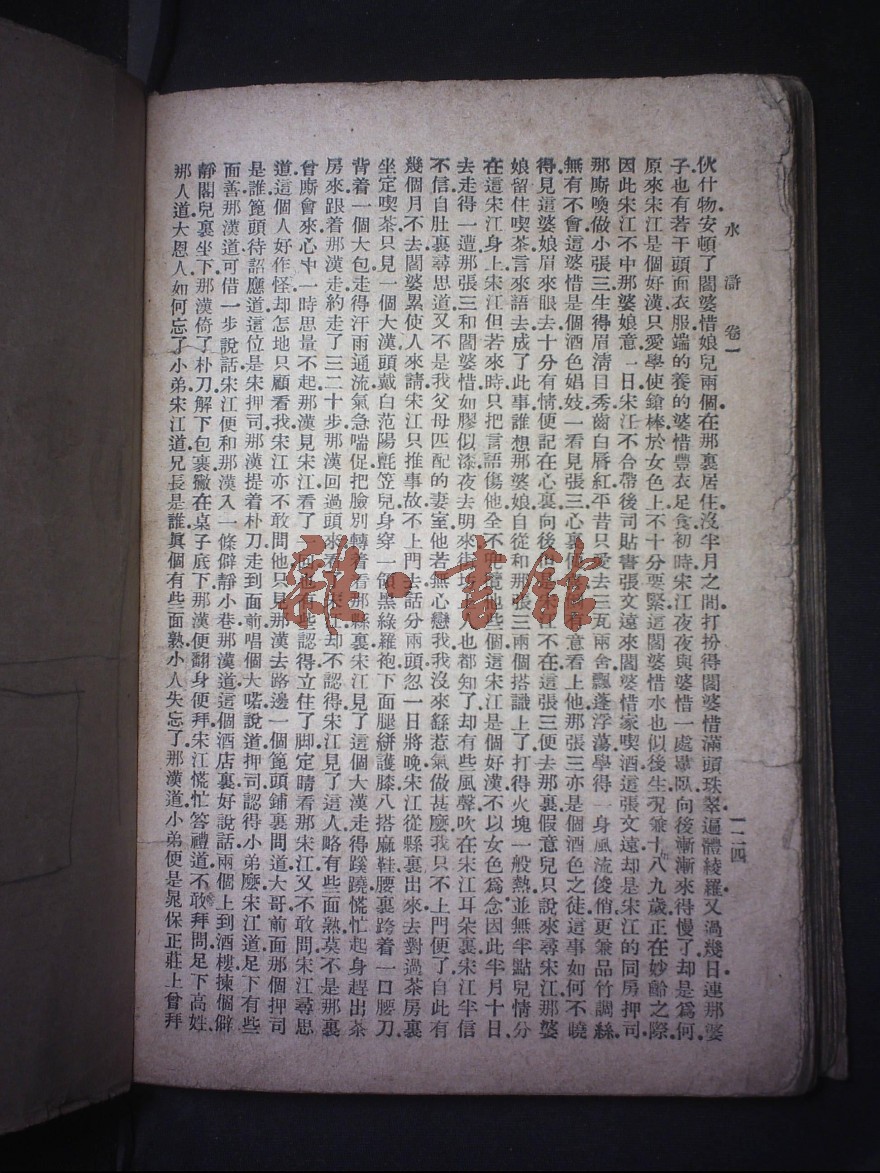 水滸 卷一 一二四
伙什物安頓了閻婆惜娘兒兩個在那裏居住沒半月之間打扮得閻婆惜滿頭珠翠遍體綾羅又過幾日連那婆
子也有若干頭面衣服端的養的婆惜豐衣足食初時宋江夜夜與婆惜一處歇臥向後漸漸來得慢了却是爲何
原來宋江是個好漢只愛學使鎗棒於女色上不十分要緊這閻婆惜水也似後生況兼十八九歲正在妙齡之際
因此宋江不中那婆娘意一日宋江不合帶後司貼書張文遠來閻婆惜家喫酒這張文遠却是宋江的同房押司
那廝喚做小張三生得眉淸目秀齒白唇紅平昔只愛去三瓦兩舍飄蓬浮蕩學得一身風流俊俏更兼品竹調絲
無有不會這婆惜是個酒色娼妓一看見張三心裏便 有意看上他那張三亦是個酒色之徒這事如何不曉
得見這婆娘眉來眼去十分有情便記在心裏向後 不在這張三便去那裏假意兒只說來尋宋江那婆
娘留住喫茶言來語去成了此事誰想那婆娘自從和那張三兩個搭識上了打得火塊一般熱並無半點兒情分
在這宋江身上宋江但若來時只把言語傷他全不兜攬他些個這宋江是個好漢不以女色爲念因此半月十日
去走得一遭那張三和閻婆惜如膠似漆夜去明來街坊上也都知了却有些風聲吹在宋江耳朵裏宋江半信
不信自肚裏尋思道又不是我父母匹配的妻室他若無心戀我我沒來繇惹氣做甚麽我只不上門便了自此有
幾個月不去閻婆累使人來請宋江只推事故不上門去話分兩頭忽一日將晚宋江從縣裏出來去對過茶房裏
坐定喫茶只見一個大漢頭戴白范陽氈笠兒身穿一領黑綠羅袍下面腿絣護膝八搭麻鞋腰裏跨着一口腰刀
背着一個大包走得汗雨通流氣急喘促把臉別轉着看那縣裏宋江見了這個大漢走得蹊蹺慌忙起身趕出茶
房來跟着那漢走約走了三二十步那漢回過頭來看了宋江却不認得宋江見了這人略有些面熟莫不是那裏
曾廝會來心中一時思量不起那漢見宋江看了一回也有些認得立住了脚定睛看那宋江又不敢問宋江尋思
道這個人好作怪却怎地只顧看我宋江亦不敢問他只見那漢去路邊一個篦頭鋪裏問道大哥前面那個押司
是誰篦頭待詔應道這位是宋押司那漢提着朴刀走到面前唱個大喏說道押司認得小弟麽宋江道足下有些
面善那漢道可借一步說話宋江便和那漢入一條僻靜小巷那漢道這個酒店裏好說話兩個上到酒樓揀個僻
靜閣兒裏坐下那漢倚了朴刀解下包裹撇在桌子底下那漢便翻身便拜宋江慌忙答禮道不敢拜問足下高姓
那人道大恩人如何忘了小弟宋江道兄長是誰眞個有些面熟小人失忘了那漢道小弟便是晁保正莊上曾拜
雜·書館